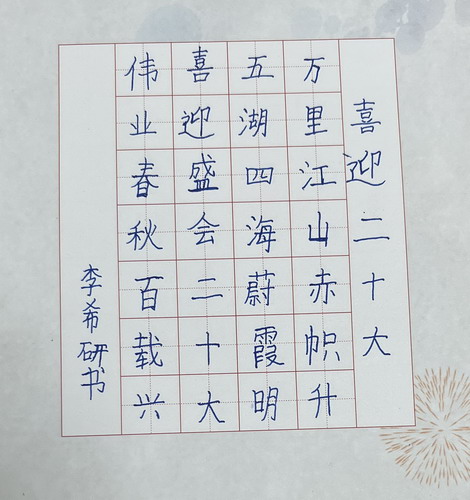 喜迎二十大
万里江山赤帜升
五湖四海蔚霞明
喜迎盛会二十大
伟业春秋百载兴
李希研书